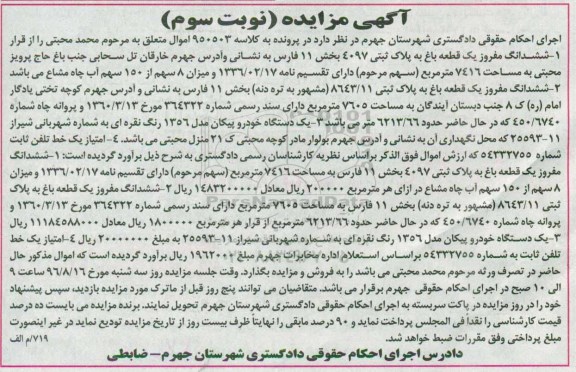 آگهی مزایده (نوبت سوم)
اجرای احکام حقوقی دادگستری شهرستان جهرم در نظر دارد در پرونده به کلاسه ۹۵۰۵۰۳ اموال متعلق به مرحوم محمد محبتی را از قرار
۱-ششدانگ مفروز یک قطعه باغ به پلاک ثبتی ۴۰۹۷ بخش ۱۱ فارس به نشانی وآدرس جهرم خارقان تل سحابی جنب باغ حاج پرویز
محبتی به مساحت ۷۴۱۶ مترمربع (سهم مرحوم) دارای تقسیم نامه ۱۳۳۶/۰۲/۱۷ و میزان ۸ سهم از ۱۵۰ سهم آب چاه مشاع می باشد
۲-ششدانگ مفروز یک قطعه باغ به پلاک ثبتی ۸۶۴۳/۱۱ (مشهور به تره دنه) بخش ۱۱ فارس به نشانی و آدرس جهرم کوچه تختی یادگار
امام (ره) ک ۸ جنب دبستان آیندگان به مساحت ۷۶۰۵ مترمربع دارای سند رسمی شماره ۳۶۴۳۲۲ مورخ ۱۳۶۰/۳/۱۳ و پروانه چاه شماره
۴۵۰/۶۷۴۰ که در حال حاضر حدود ۶۲۱۳/۶۶ متر باشد ۳-یک دستگاه خودرو پیکان مدل ۱۳۵۶ رنگ نقره ای به شماره شهربانی شیراز
۱۱-۲۵۵۹۳ که محل نگهداری آن به نشانی و آدرس جهرم بولوار مادر کوچه محبتی ک ۲۱ منزل محبتی می باشد. ۴-امتیاز یک خط تلفن ثابت
شماره ۵۴۳۳۲۷۵۵ که ارزش اموال فوق الذکر براساس نظریه کارشناسان رسمی دادگستری به شرح ذیل برآورد گردیده است: ۱-ششدانگ
مفروز یک قطعه باغ به پلاک ثبتی ۴۰۹۷ بخش ۱۱ فارس به مساحت ۷۴۱۶ مترمربع (سهم مرحوم) دارای تقسیم نامه ۱۳۳۶/۰۲/۱۷ و میزان
۸ سهم از ۱۵۰ سهم آب چاه مشاع در ازای هر مترمربع ۲۰۰۰۰۰ ریال معادل ۱۴۸۳۲۰۰۰۰۰ ریال ۲-ششدانگ مفروز یک قطعه باغ به پلاک
ثبتی ۸۶۴۳/۱۱ (مشهور به تره دنه) بخش ۱۱ فارس به مساحت ۷۶۰۵ مترمربع دارای سند رسمی شماره ۳۶۴۳۲۲ مورخ ۱۳۶۰/۳/۱۳ و
پروانه چاه شماره ۴۵۰/۶۷۴۰ که در حال حاضر حدود ۶۲۱۳/۶۶ مترمربع از قرار هر مترمربع ۱۸۰۰۰۰۰ ریال معادل ۱۱۱۸۴۵۸۸۰۰۰ ریال
۳-یک دستگاه خودرو پیکان مدل ۱۳۵۶ رنگ نقره ای به شماره شهربانی شیراز ۱۱-۲۵۵۹۳ به مبلغ ۲۰۰۰۰۰۰۰ ریال ۴-امتیاز یک خط
تلفن ثابت به شماره ۵۴۳۳۲۷۵۵ براساس استعلام اداره مخابرات جهرم مبلغ ۱۹۶۲۰۰۰ ریال برآورد گردیده است که اموال مذکور حال
حاضر در تصرف ورثه مرحوم محمد محبتی می باشد را به فروش و مزایده بگذارد. وقت جلسه مزایده روز سه شنبه مورخ ۹۶/۸/۱۶ ساعت ۹
الی ۱۰ صبح در اجرای احکام حقوقی جهرم برقرار می باشد. متقاضیان می توانند پنج روز قبل از ماترک مورد مزایده بازدید، سپس پیشنهاد
خود را در روز مزایده در پاکت سربسته به اجرای احکام حقوقی دادگستری شهرستان جهرم تحویل نمایند. برنده مزایده می بایست ده درصد
قیمت کارشناسی را نقدا فی المجلس پرداخت نماید و ۹۰ درصد مابقی را نهایتا ظرف بیست روز از تاریخ مزایده تودیع نماید در غیر اینصورت
مبلغ پرداختی وفق مقررات ضبط خواهد شد.
۷۱۹/م الف
دادرس اجرای احکام حقوقی دادگستری شهرستان جهرم- ضابطی